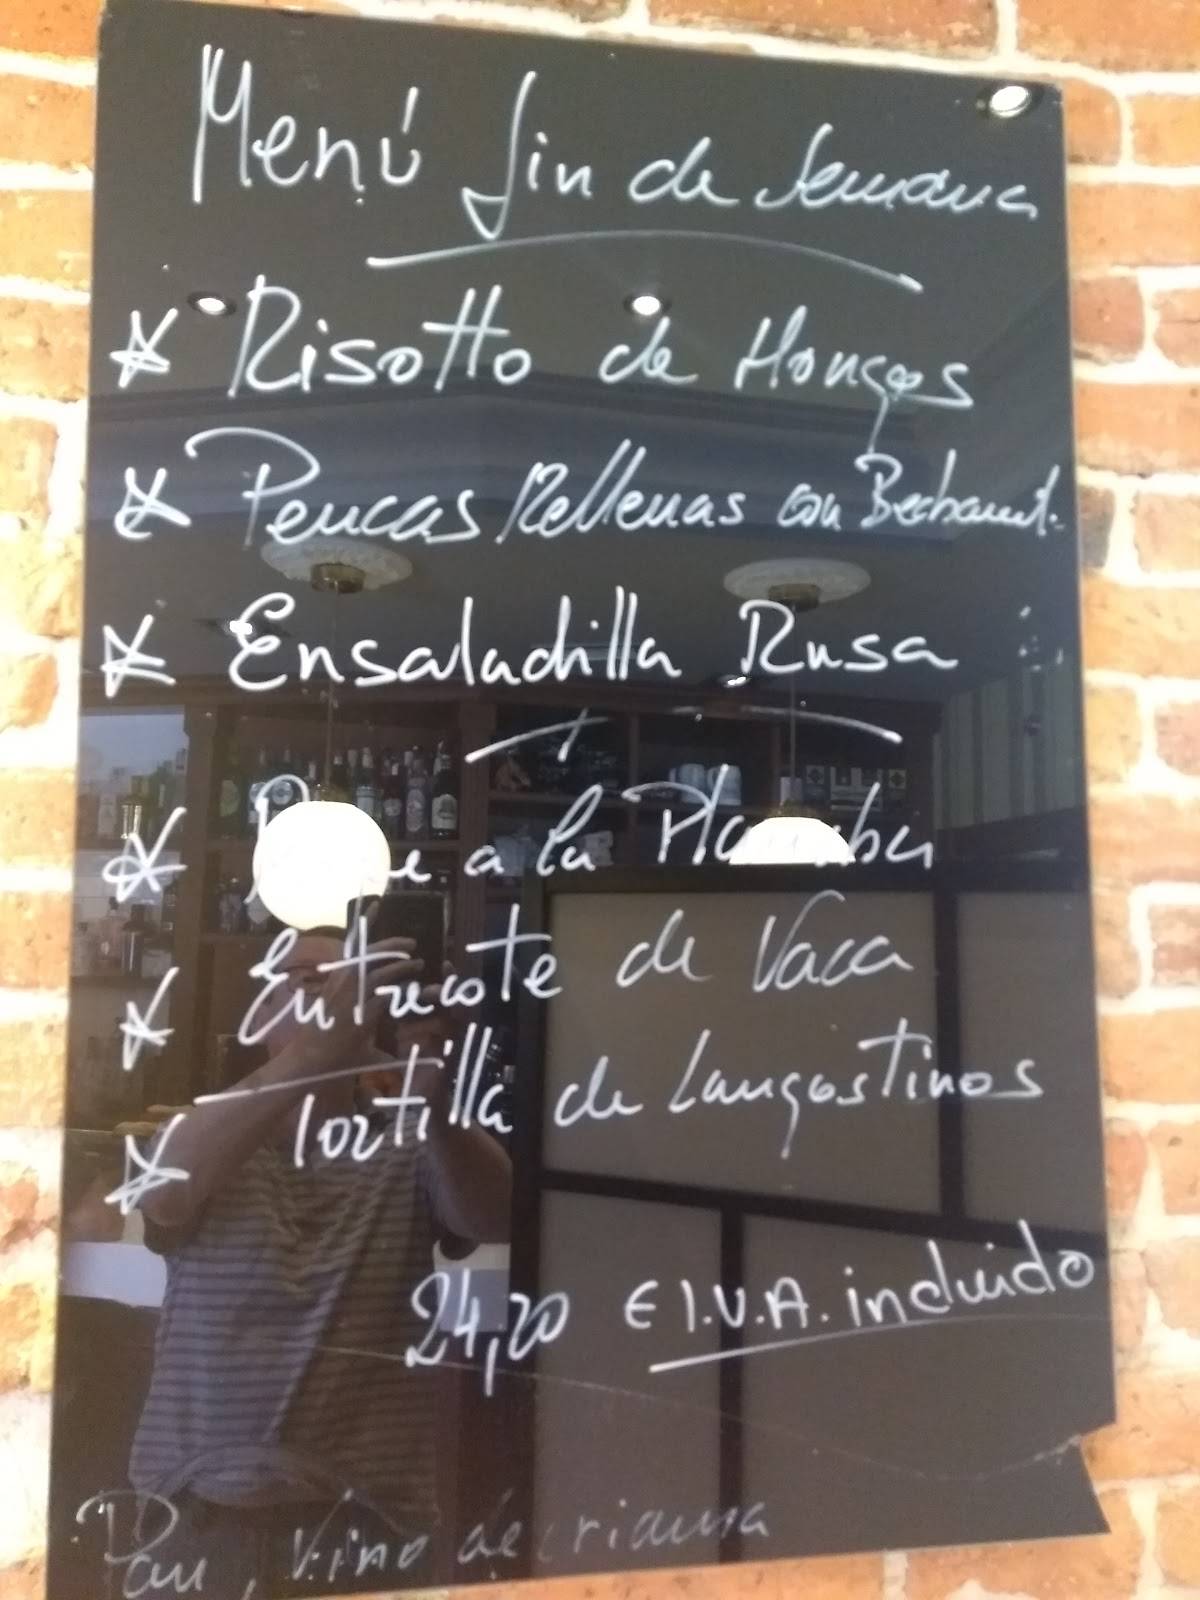 Menú fin de Semana
Risotto de Hongos
Pencas Rellenas con Bechamel.
Ensaladilla Rusa
a la Plancha
Entrecote de Vaca
Tortilla de Langostinos
24,20 € I.V.A. incluido
Pan, Vino de crianza